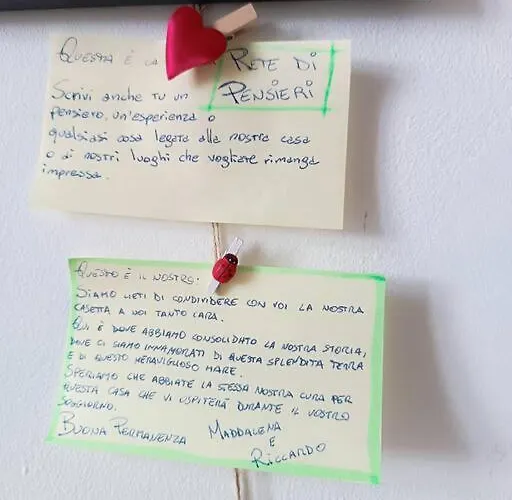 QUESTA È LA RETE DI
PENSIERI
Scrivi anche tu un
pensiero, un'esperienza o
qualsiasi cosa legata alla nostra casa
o ai nostri luoghi che vogliate rimanga
impressa.
QUESTO È IL NOSTRO:
SIAMO LIETI DI CONDIVIDERE CON VOI LA NOSTRA
CASETTA A NOI TANTO CARA.
QUI È DOVE ABBIAMO CONSOLIDATO LA NOSTRA STORIA,
DOVE CI SIAMO INNAMORATI DI QUESTA SPLENDITA TERRA
E DI QUESTO MERAVIGLIOSO MARE.
SPERIAMO CHE ABBIATE LA STESSA NOSTRA CURA PER
QUESTA CASA CHE VI OSPITERÀ DURANTE IL VOSTRO
SOGGIORNO.
BUONA PERMANENZA MADDALENA
E
RICCARDO